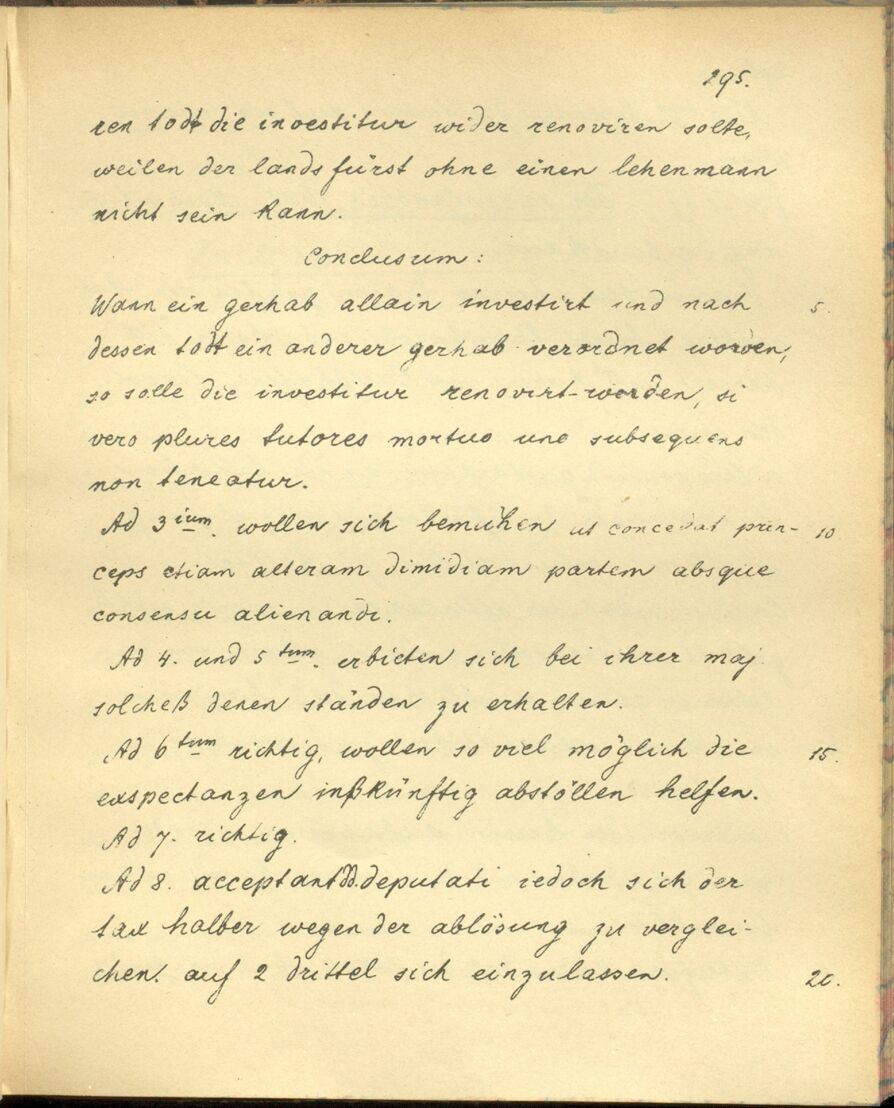 295.
ren todt die investitur wider renoviren solte,
weilen der landsfürst ohne einen lehenmann
nicht sein kann.
Conclusum:
Wann ein gerhab allain investirt und nach 5.
dessen todt ein anderer gerhab verordnet worden,
so solle die investitur renovirt werden, si
vero plures tutores mortuo uno subsequens
non teneatur.
Ad 3ium. wollen sich bemühen ut concedat prin- 10
ceps etiam alteram dimidiam partem absque
consensu alienandi.
Ad 4. und 5tum. erbieten sich bei ihrer maj.
solcheß denen ständen zu erhalten.
Ad 6tum richtig, wollen so viel möglich die 15.
exspectanzen inßkünftig abstöllen helfen.
Ad 7. richtig.
Ad 8. acceptant dd. deputati iedoch sich der
tax halber wegen der ablösung zu verglei-
chen. auf 2 drittel sich einzulassen. 20.